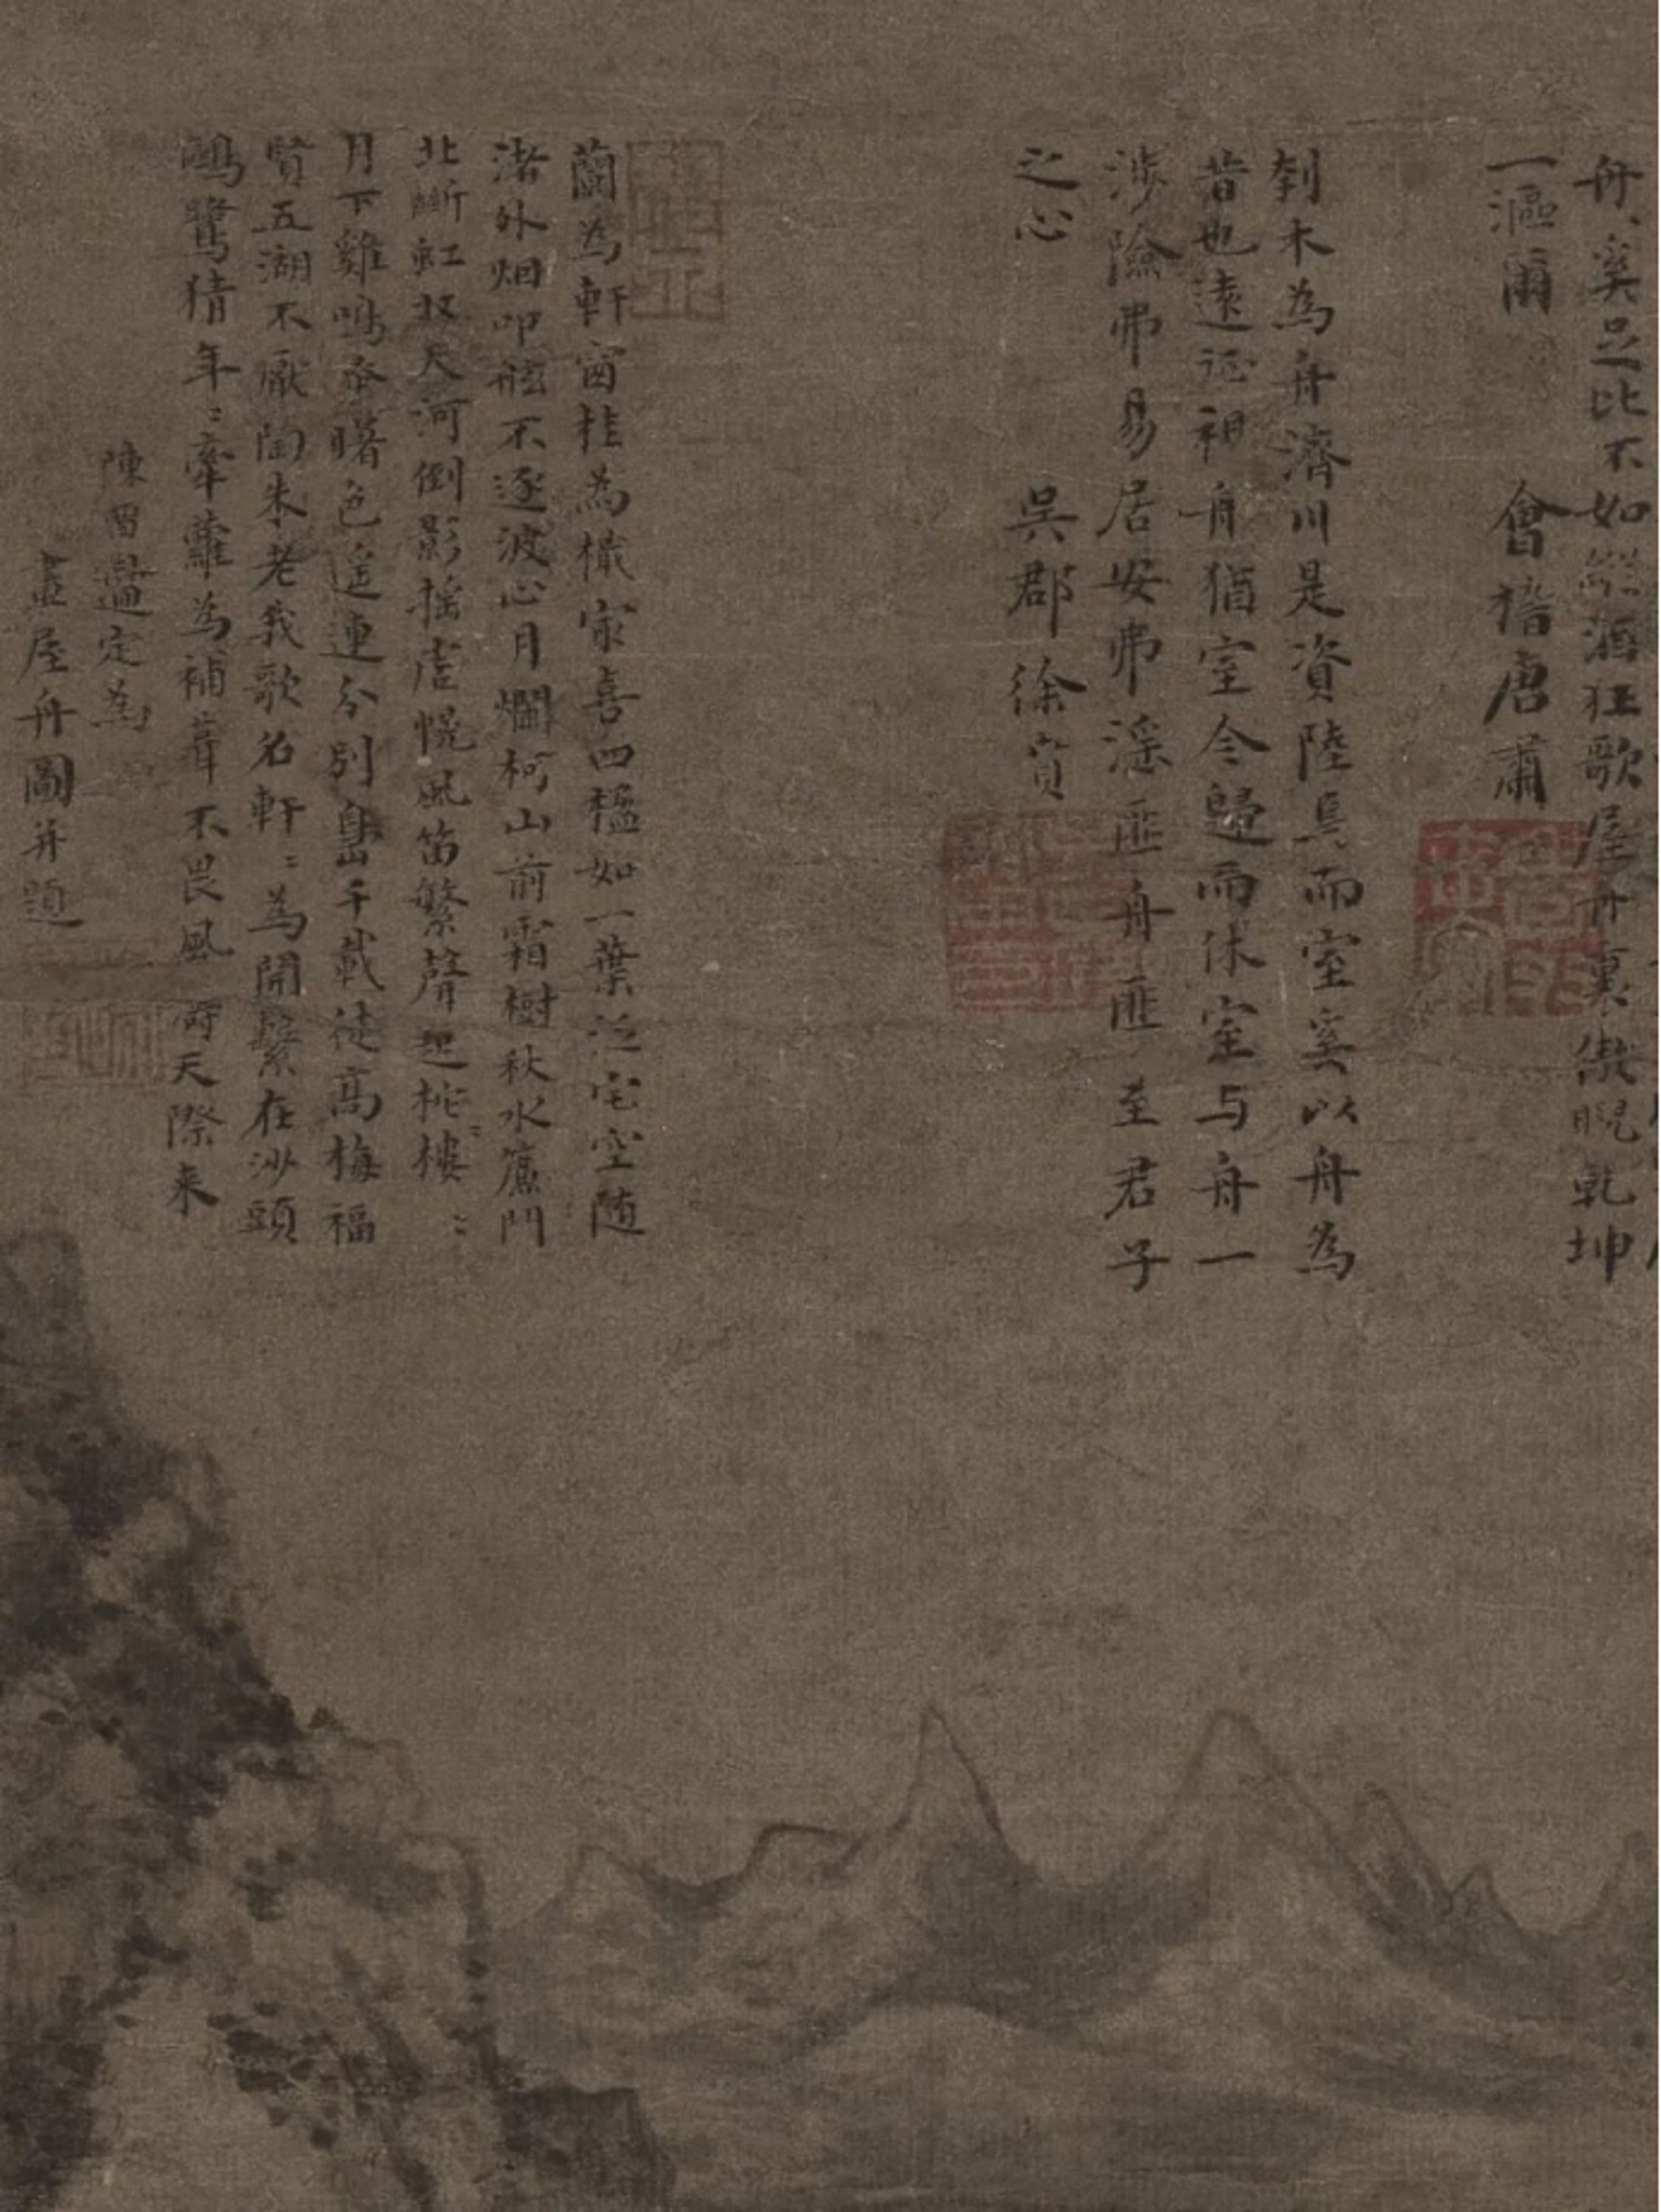 舟、奚足比不如縱酒狂歌屋舟裏傲睨乾坤
一漚爾　會稽唐肅
刳木為舟濟川是資陸具而室奚以舟為
昔也遠征視舟猶室今歸而休室与舟一
涉險弗易居安弗滛匪舟匪至君子
之心　吳郡徐賁
蘭為軒窗桂為檝家喜四楹如一葉泛宅空随
渚外烟叩舷不逐波心月爛柯山前霜樹秋水窻門
北斷虹收天河倒影揺虚幌風笛繁聲起柁樓:
月下雞鳴忝曙色遥連分別島千載徒高梅福
賢五湖不厭陶朱老我歌名軒:為開繫在沙頭
鷗鷺猜年:牽蘿為補葺不畏風 天際来
陳 定為
畫屋舟圖并題